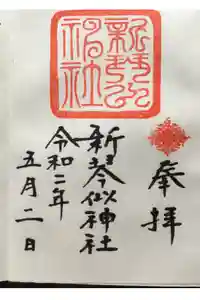 奉拝
新琴似
神社
新琴似神社
令和二年
五月二日